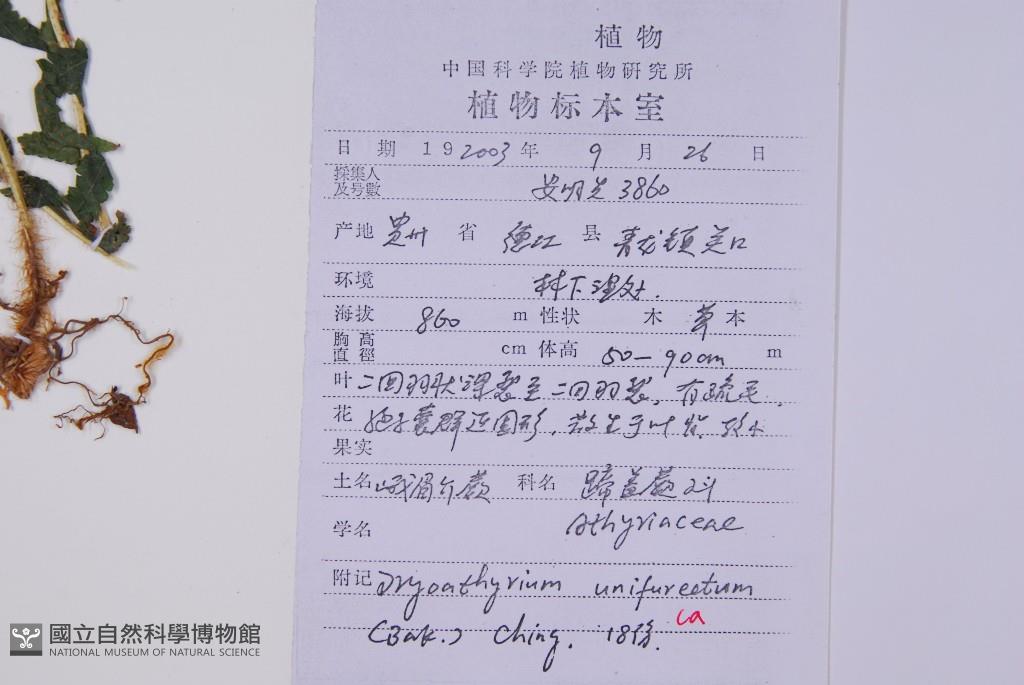 植物
中国科学院植物研究所
植物标本室
日 期 192003年 9 月 26 日
採集人
及号數 安明先 3860
产地 贵州 省 德江 县 青龙镇关口
环境 林下湿处.
海拔 860 m 性状 木 草 本
胸高
直徑 cm 体高 50-90cm m
叶 二回羽状深裂至二回羽裂, 有疏毛,
花 孢子囊群近圆形, 散生于叶背
果实
土名 峨眉介蕨 科名 蹄盖蕨科
学名 Athyriaceae
附记 Dryoathyrium unifurcatum
(Bak.) Ching. 18份.
ca
國立自然科學博物館
NATIONAL MUSEUM OF NATURAL SCIENCE